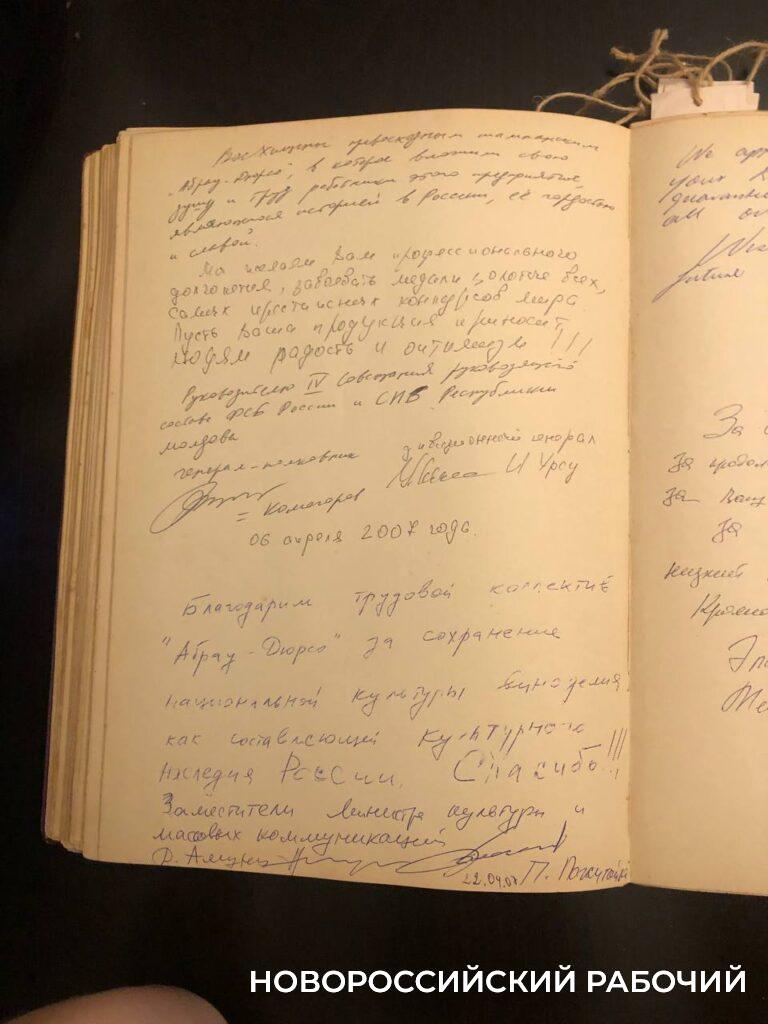 Восхищены превосходным шампанским
"Абрау-Дюрсо", в которое вложили свою
душу и труд работники этого предприятия,
являющегося историей в России, её гордостью
и славой.
Мы желаем Вам профессионального
долголетия, завоевать медали золотые всех,
самых престижных конкурсов мира.
Пусть Ваша продукция приносит
людям радость и оптимизм!!!
Руководители IV Совещания руководящего
состава ФСБ России и СИБ Республики
Молдова
генерал-полковник дивизионный генерал
И Урсу
= Комогоров
06 апреля 2007 года.
Благодарим трудовой коллектив
"Абрау-Дюрсо" за сохранение
национальной культуры виноделия
как составляющей культурного
наследия России. Спасибо!!!
Заместители министра культуры и
массовых коммуникаций
Д. Амунц
22.04.07 П. Пожигайло
We
your
guarantee
all
future
За
За
За Вашу
За
низкий
НОВОРОССИЙСКИЙ РАБОЧИЙ